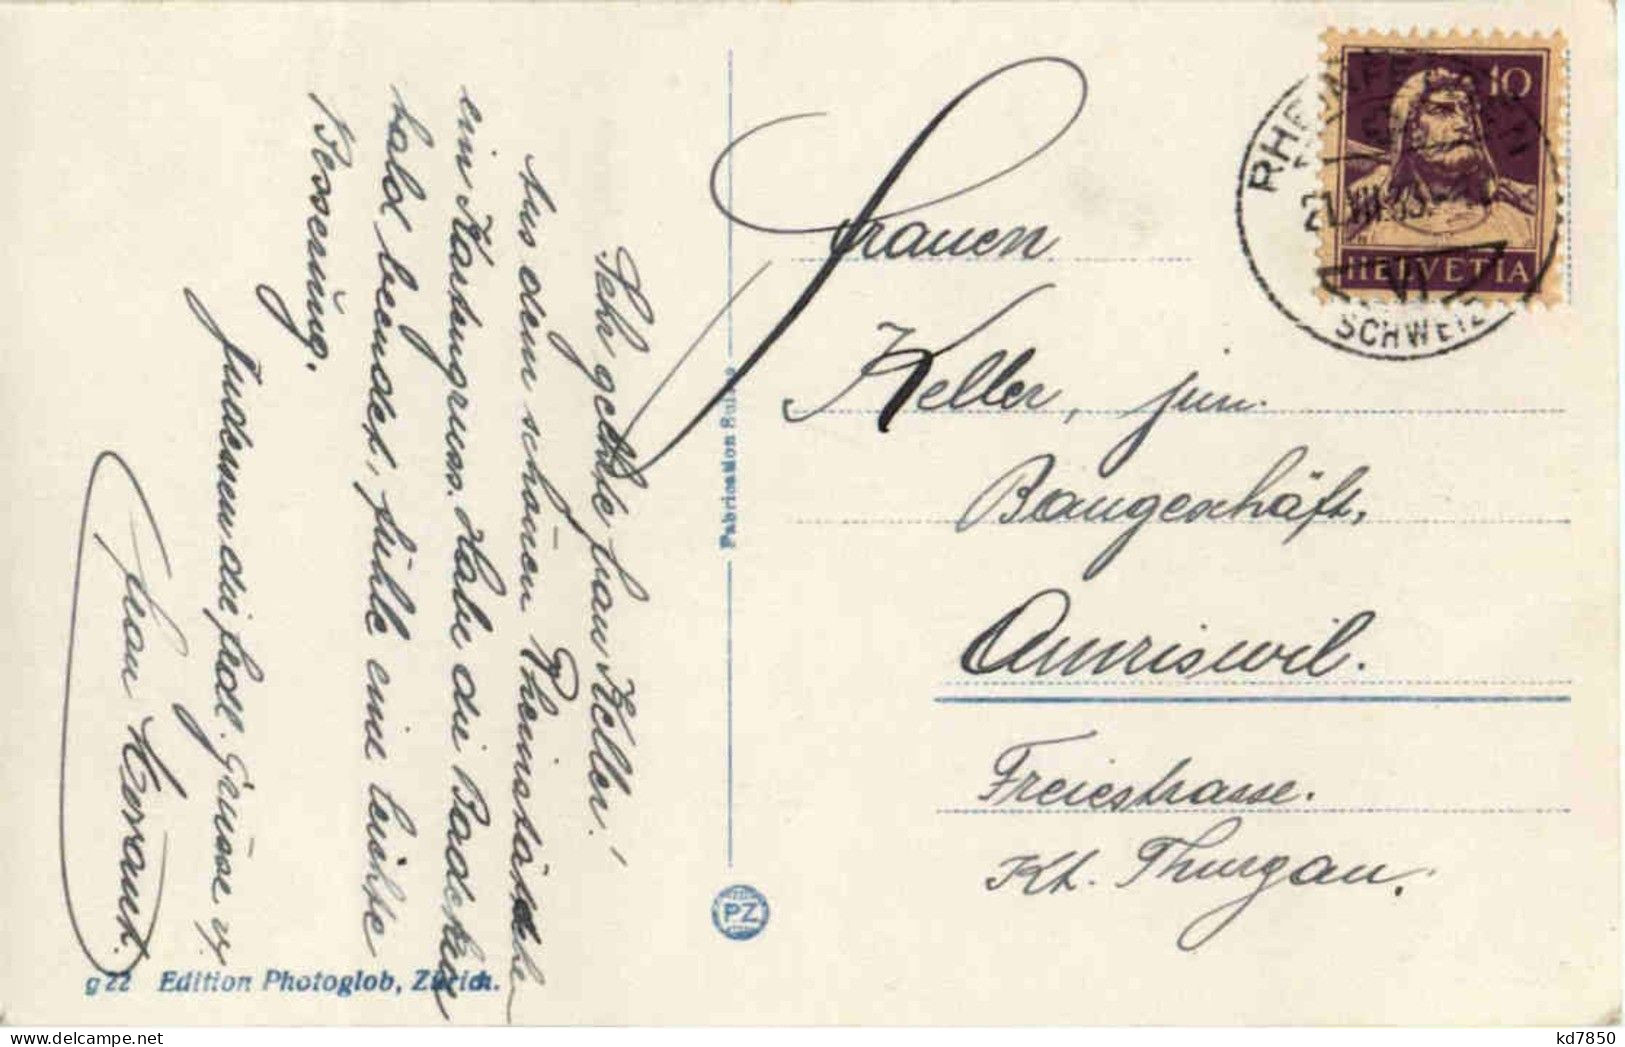 Sehr geehrte Frau Keller!
Aus dem schönen Rheinstädtchen
ein Kartengruss. Habe die Badekur
bald beendet, fühle eine leichte
Besserung.
Indessen die frdl. Grüsse v.
Frau
g 22 Edition Photoglob, Zürich.
Fabrication Suisse
PZ
Frauen
Keller, jun.
Baugeschäft,
Amriswil.
Freiestrasse.
Kt. Thurgau.
10
HELVETIA
RHEINFELDEN
SCHWEIZ
kd7850